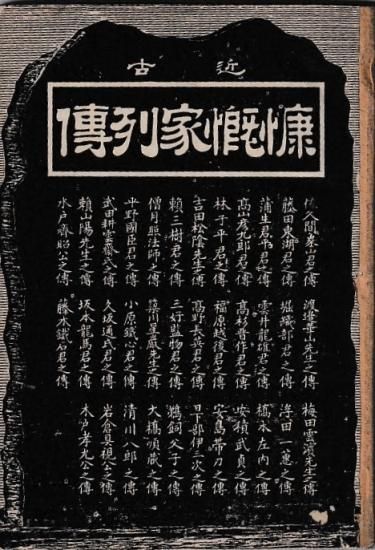 近古
慷慨家列傳
佐久間象山君之傳
藤田東湖君之傳
蒲生君平君之傳
高山彦九郎君之傳
林子平君之傳
吉田松陰先生之傳
頼三樹君之傳
僧月照法師之傳
平野國臣君之傳
武田耕雲齋君之傳
頼山陽先生之傳
水戸齊昭公之傳
渡邊華山先生之傳
堀織部君之傳
雲井龍雄君之傳
高杉晋作君之傳
福原越後君之傳
高野長英君之傳
三好監物君之傳
簗川星巌先生之傳
小原鐵心君之傳
久坂通武君之傳
坂本龍馬君之傳
藤本鐵石君之傳
梅田雲濱先生之傳
浮田一蕙之傳
橋本左内之傳
安積武貞之傳
安島帯刀之傳
日下部伊三次之傳
鵜飼父子之傳
大橋順蔵之傳
清川八郎之傳
岩倉具視公之傳
木戸孝允公之傳